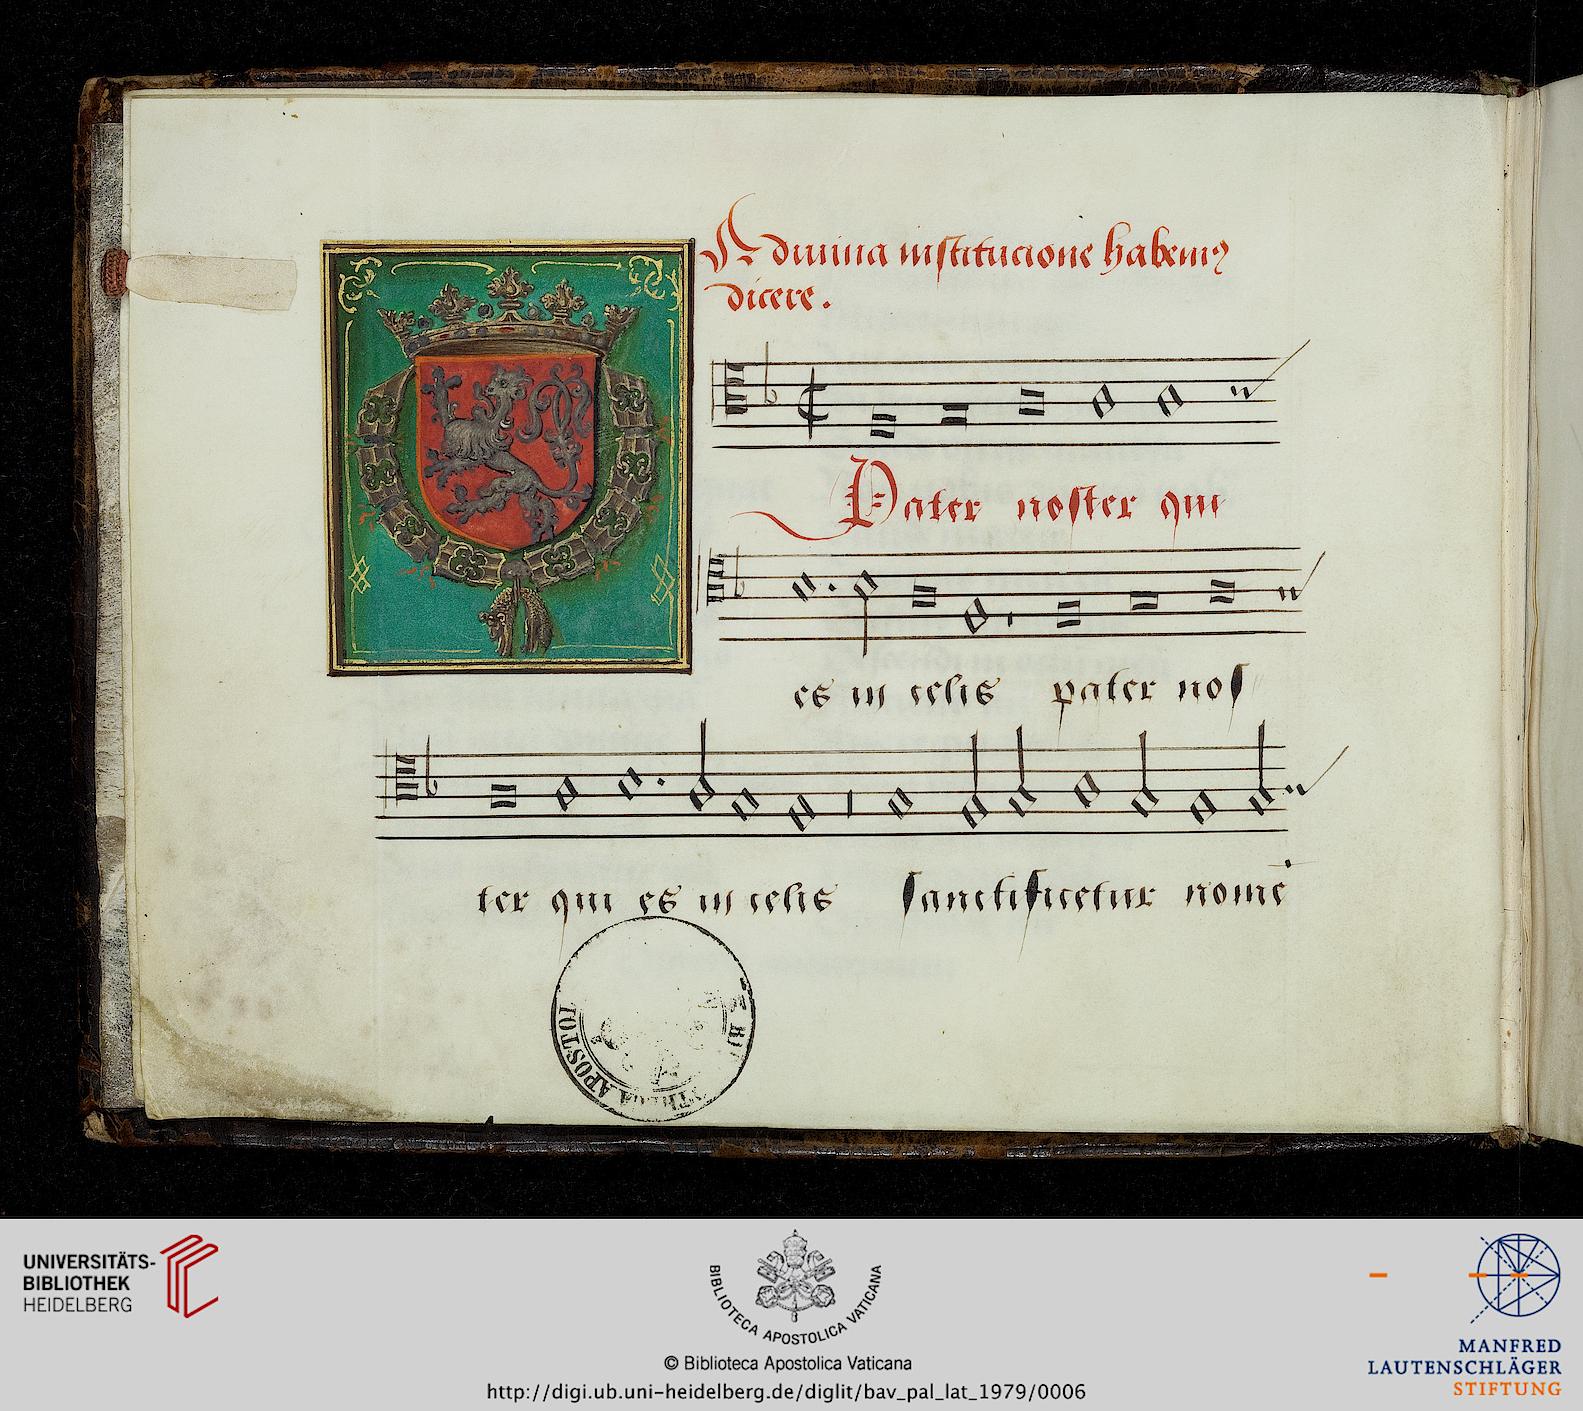 A diuina institucione habemꝰ
dicere .
Pater noster qui
es in celis pater nos
ter qui es in celis sanctificetur nomē
APOSTO
UNIVERSITÄTS-
BIBLIOTHEK
HEIDELBERG
BIBLIOTECA APOSTOLICA VATICANA
© Biblioteca Apostolica Vaticana
http://digi.ub.uni-heidelberg.de/diglit/bav_pal_lat_1979/0006
MANFRED
LAUTENSCHLÄGER
STIFTUNG